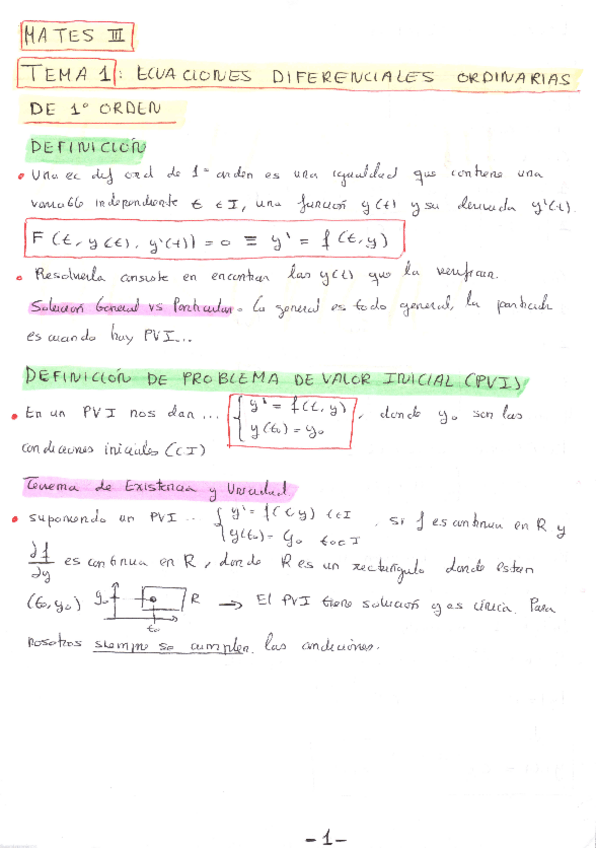 MATES III
TEMA 1: ECUACIONES DIFERENCIALES ORDINARIAS
DE 1º ORDEN
DEFINICIÓN
• Una ec dif ord de 1º orden es una igualdad que contiene una
variable independiente t ∈ I, una función y(t) y su derivada y'(t).
F(t, y(t), y'(t)) = 0 ≡ y' = f(t,y)
• Resolverla consiste en encontrar las y(t) que la verifican.
Solución General vs Particular. La general es todo general, la particular
es cuando hay PVI...
DEFINICIÓN DE PROBLEMA DE VALOR INICIAL (PVI)
• En un PVI nos dan ... { y' = f(t, y) y(t₀) = y₀ , donde y₀ son las
condiciones iniciales (CI)
Teorema de Existencia y Unicidad
• suponiendo un PVI .. { y' = f(t,y) t∈I y(t₀) = y₀ t₀∈I , si f es continua en R y
∂f/∂y es continua en R, donde R es un rectángulo donde estan
(t₀, y₀) y₀ t₀ R → El PVI tiene solución y es única. Para
nosotros siempre se cumplen las condiciones.
-1-